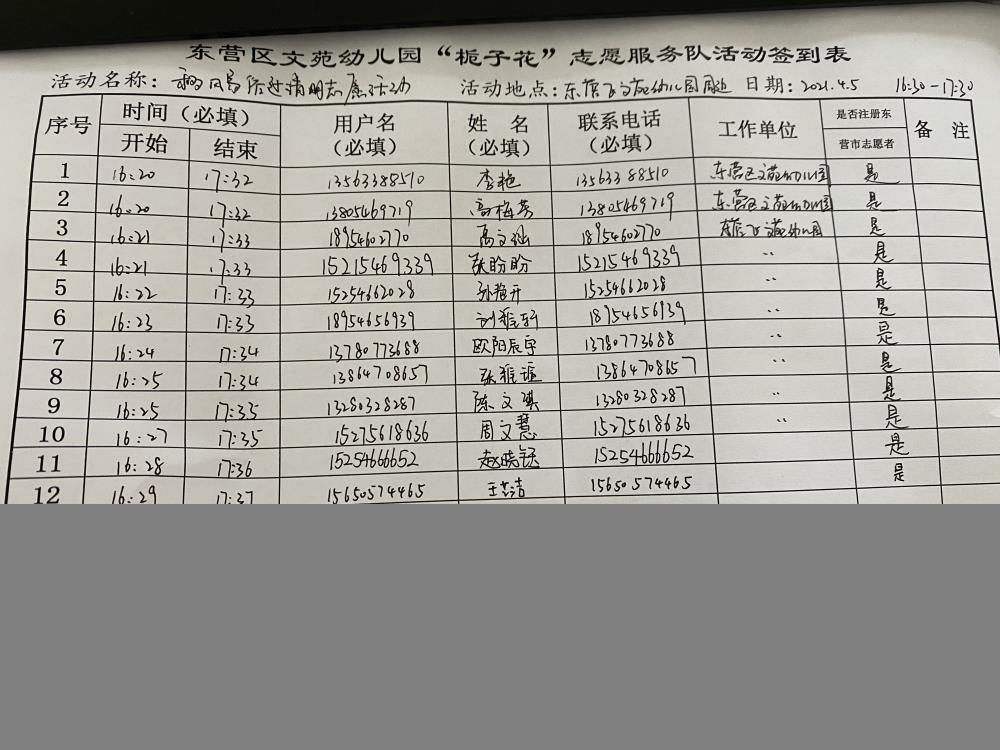 东营区文苑幼儿园“栀子花”志愿服务队活动签到表
活动名称： 清明志愿活动 活动地点：东营区文苑幼儿园周边 日期：2021.4.5 16:30-17:30
序号 时间（必填） 用户名（必填） 姓名（必填） 联系电话（必填） 工作单位 是否注册东营市志愿者 备注
开始 结束
1 16:20 17:32 13563388510 李艳 13563388510 东营区文苑幼儿园 是
2 16:20 17:32 13805469719 高梅英 13805469719 东营区文苑幼儿园 是
3 16:21 17:33 18954602770 高文 18954602770 东营区文苑幼儿园 是
4 16:21 17:33 15215469339 张盼盼 15215469339 〃 是
5 16:22 17:33 15254662028 孙 15254662028 〃 是
6 16:23 17:33 18954656939 刘雅轩 18954656939 〃 是
7 16:24 17:34 13780773688 欧阳辰宇 13780773688 〃 是
8 16:25 17:34 13864708657 张雅 13864708657 〃 是
9 16:25 17:35 13280328287 陈文琪 13280328287 〃 是
10 16:27 17:35 15275618636 周文慧 15275618636 〃 是
11 16:28 17:36 15254666652 赵晓 15254666652 是
12 16:29 17:37 15650574465 王洁 15650574465 是